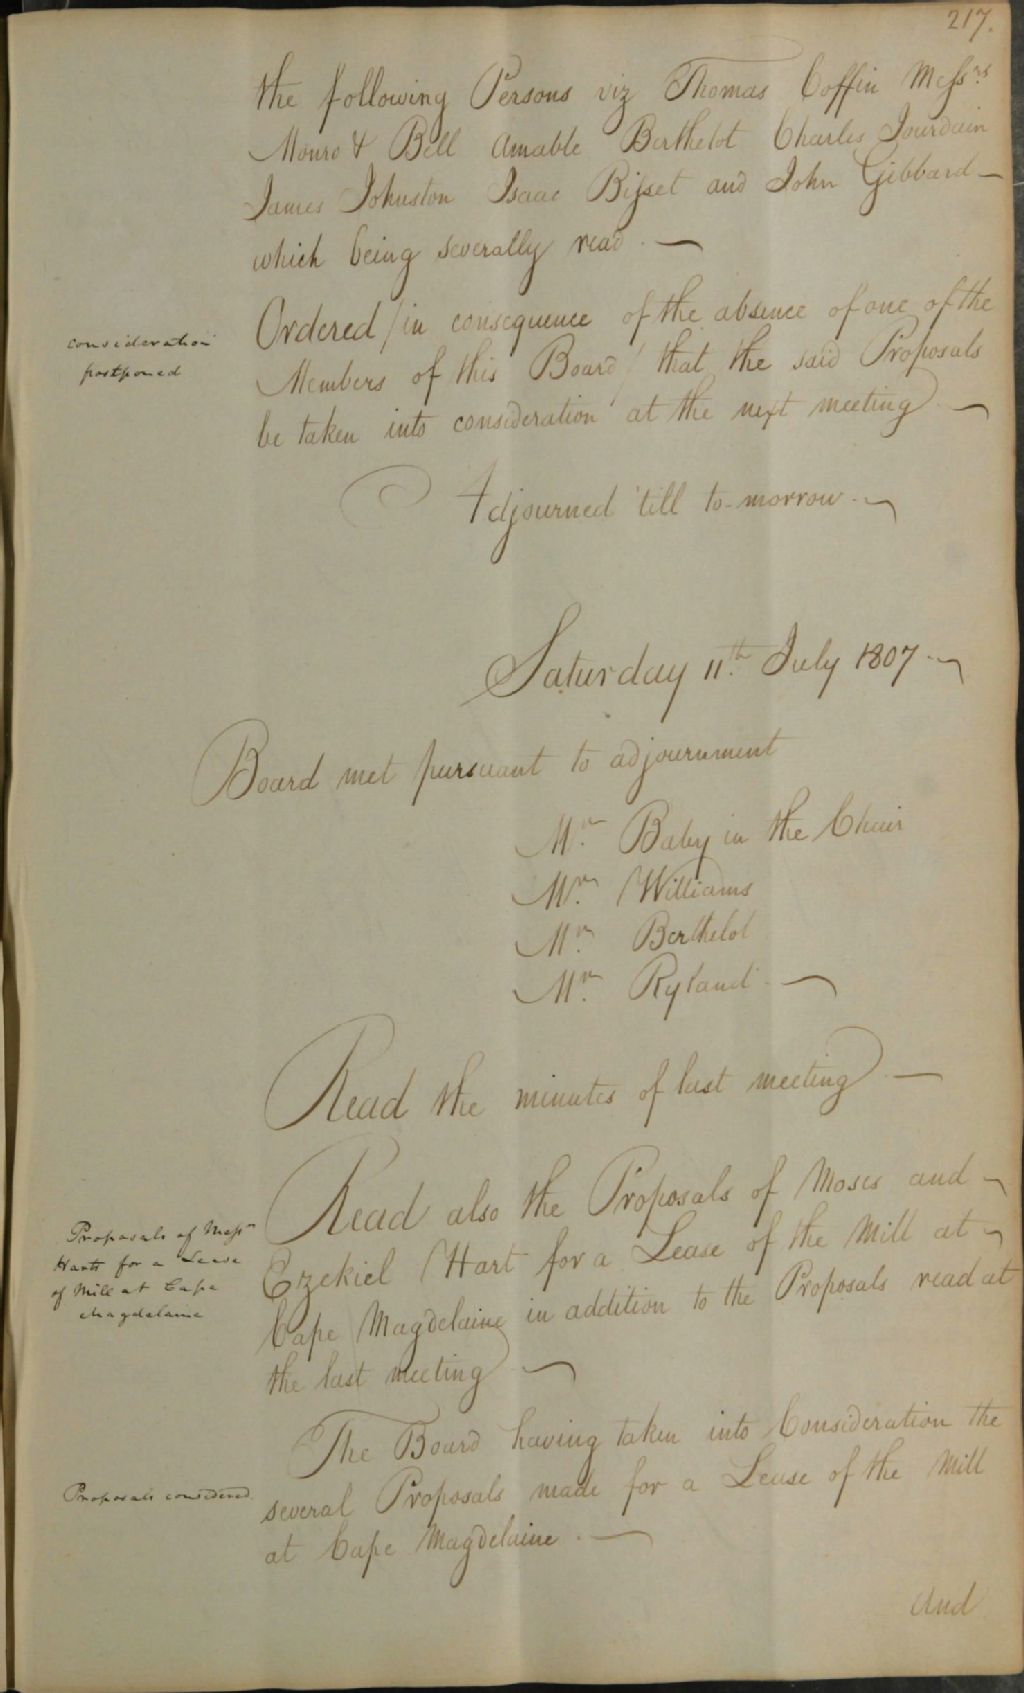 217.
the following Persons viz Thomas Coffin Messrs
Monro & Bell Amable Berthelot Charles Jourdain
James Johnston Isaac Bisset and John Gibbard —
which being severally read. —
consideration
postponed
Ordered / in consequence of the absence of one of the
Members of this Board / that the said Proposals
be taken into consideration at the next meeting. —
Adjourned 'till to-morrow. —
Saturday 11th July 1807. —
Board met pursuant to adjournment
Mr. Baby in the Chair
Mr. Williams
Mr. Berthelot
Mr. Ryland. —
Read the minutes of last meeting. —
Proposals of Messrs
Harts for a Lease
of Mill at Cape
Magdelaine
Read also the Proposals of Moses and —
Ezekiel Hart for a Lease of the Mill at —
Cape Magdelaine in addition to the Proposals read at
the last meeting. —
Proposals considered.
The Board having taken into Consideration the
several Proposals made for a Lease of the Mill
at Cape Magdelaine. —
And